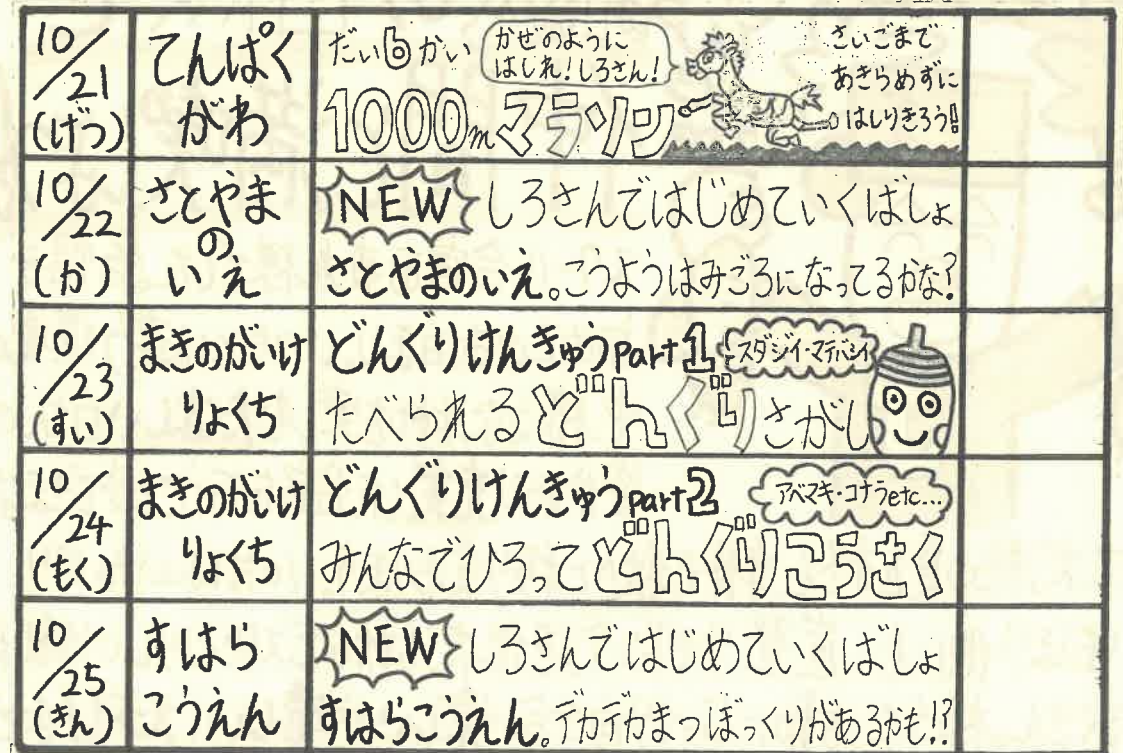 10/21
(げつ)
てんぱく
がわ
だい6かい
かぜのように
はしれ!しろさん!
1000mマラソン
さいごまで
あきらめずに
はしりきろう!!
10/22
(か)
さとやま
の
いえ
NEW しろさんではじめていくばしょ
さとやまのいえ。こうようはみごろになってるかな?
10/23
(すい)
まきのがいけ
りょくち
どんぐりけんきゅうpart1
スダジイ・マテバシイ
たべられるどんぐりさがし
10/24
(もく)
まきのがいけ
りょくち
どんぐりけんきゅうpart2
アベマキ・コナラetc...
みんなでひろってどんぐりこうさく
10/25
(きん)
すはら
こうえん
NEW しろさんではじめていくばしょ
すはらこうえん。デカデカまつぼっくりがあるかも!?